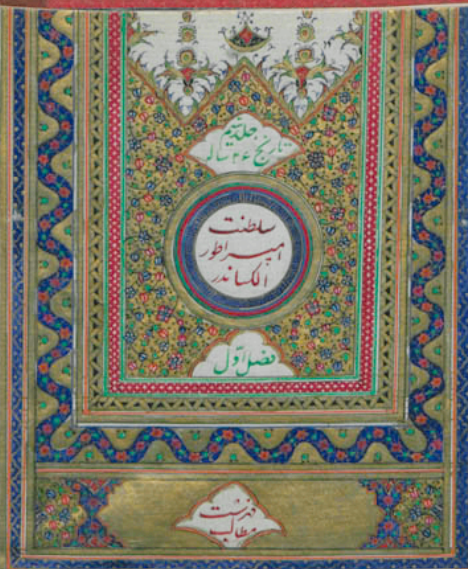 جلد
تاریخ ۲۶ ساله
سلطنت
امپراطور
الکساندر
فصل اول
فهرست
مطالب